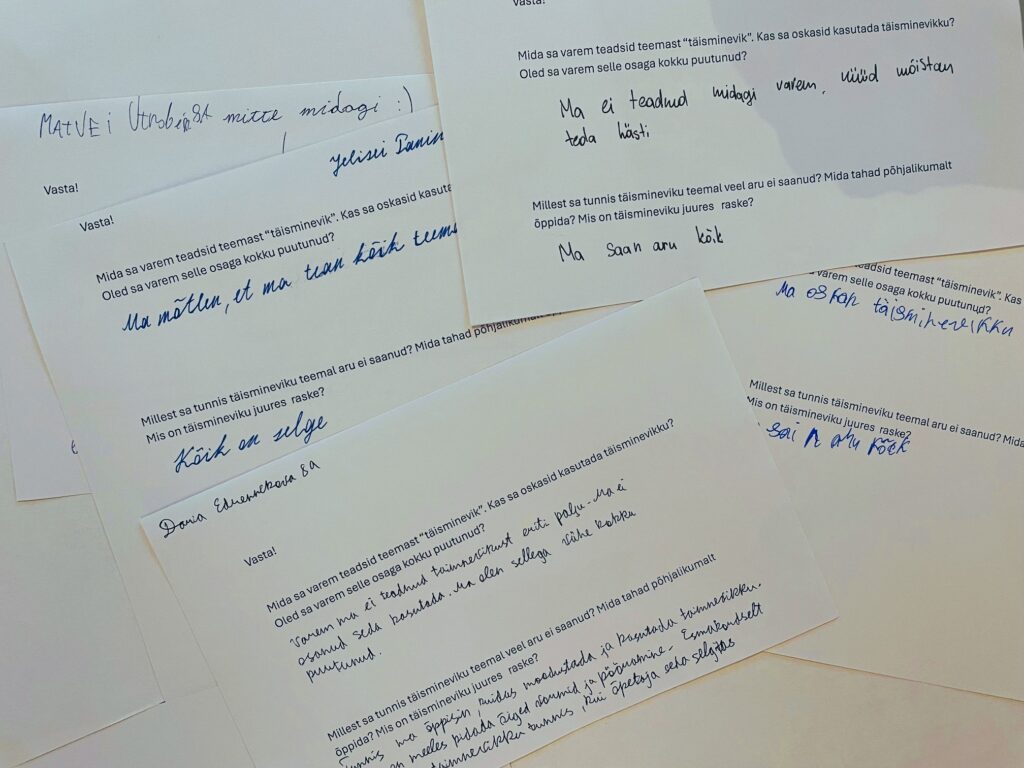 MATVEI 8A mitte midagi :)
Vasta!
Jelisei Panin
Vasta!
Mida sa varem teadsid teemast “täisminevik”. Kas sa oskasid kasuta
Oled sa varem selle osaga kokku puutunud?
Ma mõtlen, et ma tean kõik teema
Millest sa tunnis täismineviku teemal aru ei saanud? Mida tahad põhjalikumalt
Mis on täismineviku juures raske?
Kõik on selge
Vasta!
Mida sa varem teadsid teemast “täisminevik”. Kas sa oskasid kasutada täisminevikku?
Oled sa varem selle osaga kokku puutunud?
Ma ei teadnud midagi varem, nüüd mõistan
teda hästi
Millest sa tunnis täismineviku teemal veel aru ei saanud? Mida tahad põhjalikumalt
õppida? Mis on täismineviku juures raske?
Ma saan aru kõik
sa varem teadsid teemast “täisminevik”. Kas
varem selle osaga kokku puutunud?
Ma oskan täisminevikku
Millest sa tunnis täismineviku teemal aru ei saanud? Mida
Mis on täismineviku juures raske?
sain aru kõik
Daria 8A
Vasta!
Mida sa varem teadsid teemast “täisminevik”. Kas sa oskasid kasutada täisminevikku?
Oled sa varem selle osaga kokku puutunud?
Varem ma ei teadnud täiminevikust eriti palju. Ma ei
osanud seda kasutada. Ma olen sellega vähe kokku
puutunud.
Millest sa tunnis täismineviku teemal veel aru ei saanud? Mida tahad põhjalikumalt
õppida? Mis on täismineviku juures raske?
Tunnis ma õppisin, kuidas moodustada ja kasutada täiminevikku.
on meeles pidada õiged vormid ja pööramine. Esmakordselt
täiminevikku tunnis, kui õpetaja seda selgitas